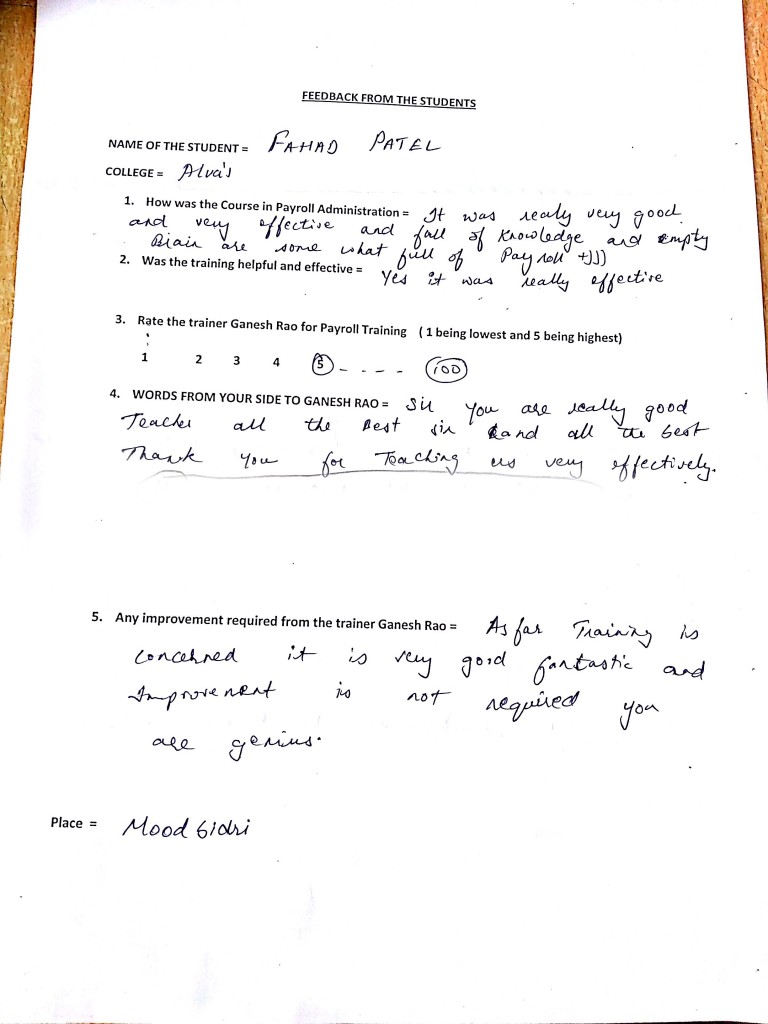 FEEDBACK FROM THE STUDENTS
NAME OF THE STUDENT = FAHAD PATEL
COLLEGE = Alva's
1. How was the Course in Payroll Administration = It was realy very good
and very effective and full of Knowledge and empty
Brain are some what full of Payroll
2. Was the training helpful and effective = Yes it was really effective
3. Rate the trainer Ganesh Rao for Payroll Training ( 1 being lowest and 5 being highest)
1 2 3 4 5 - - - - 100
4. WORDS FROM YOUR SIDE TO GANESH RAO = Sir You are really good
Teacher all the Best sir and all the best
Thank You for Teaching us very effectively.
5. Any improvement required from the trainer Ganesh Rao = As far Training is
concehned it is very good fantastic and
Improvement is not required you
are genius.
Place = Moodbidri